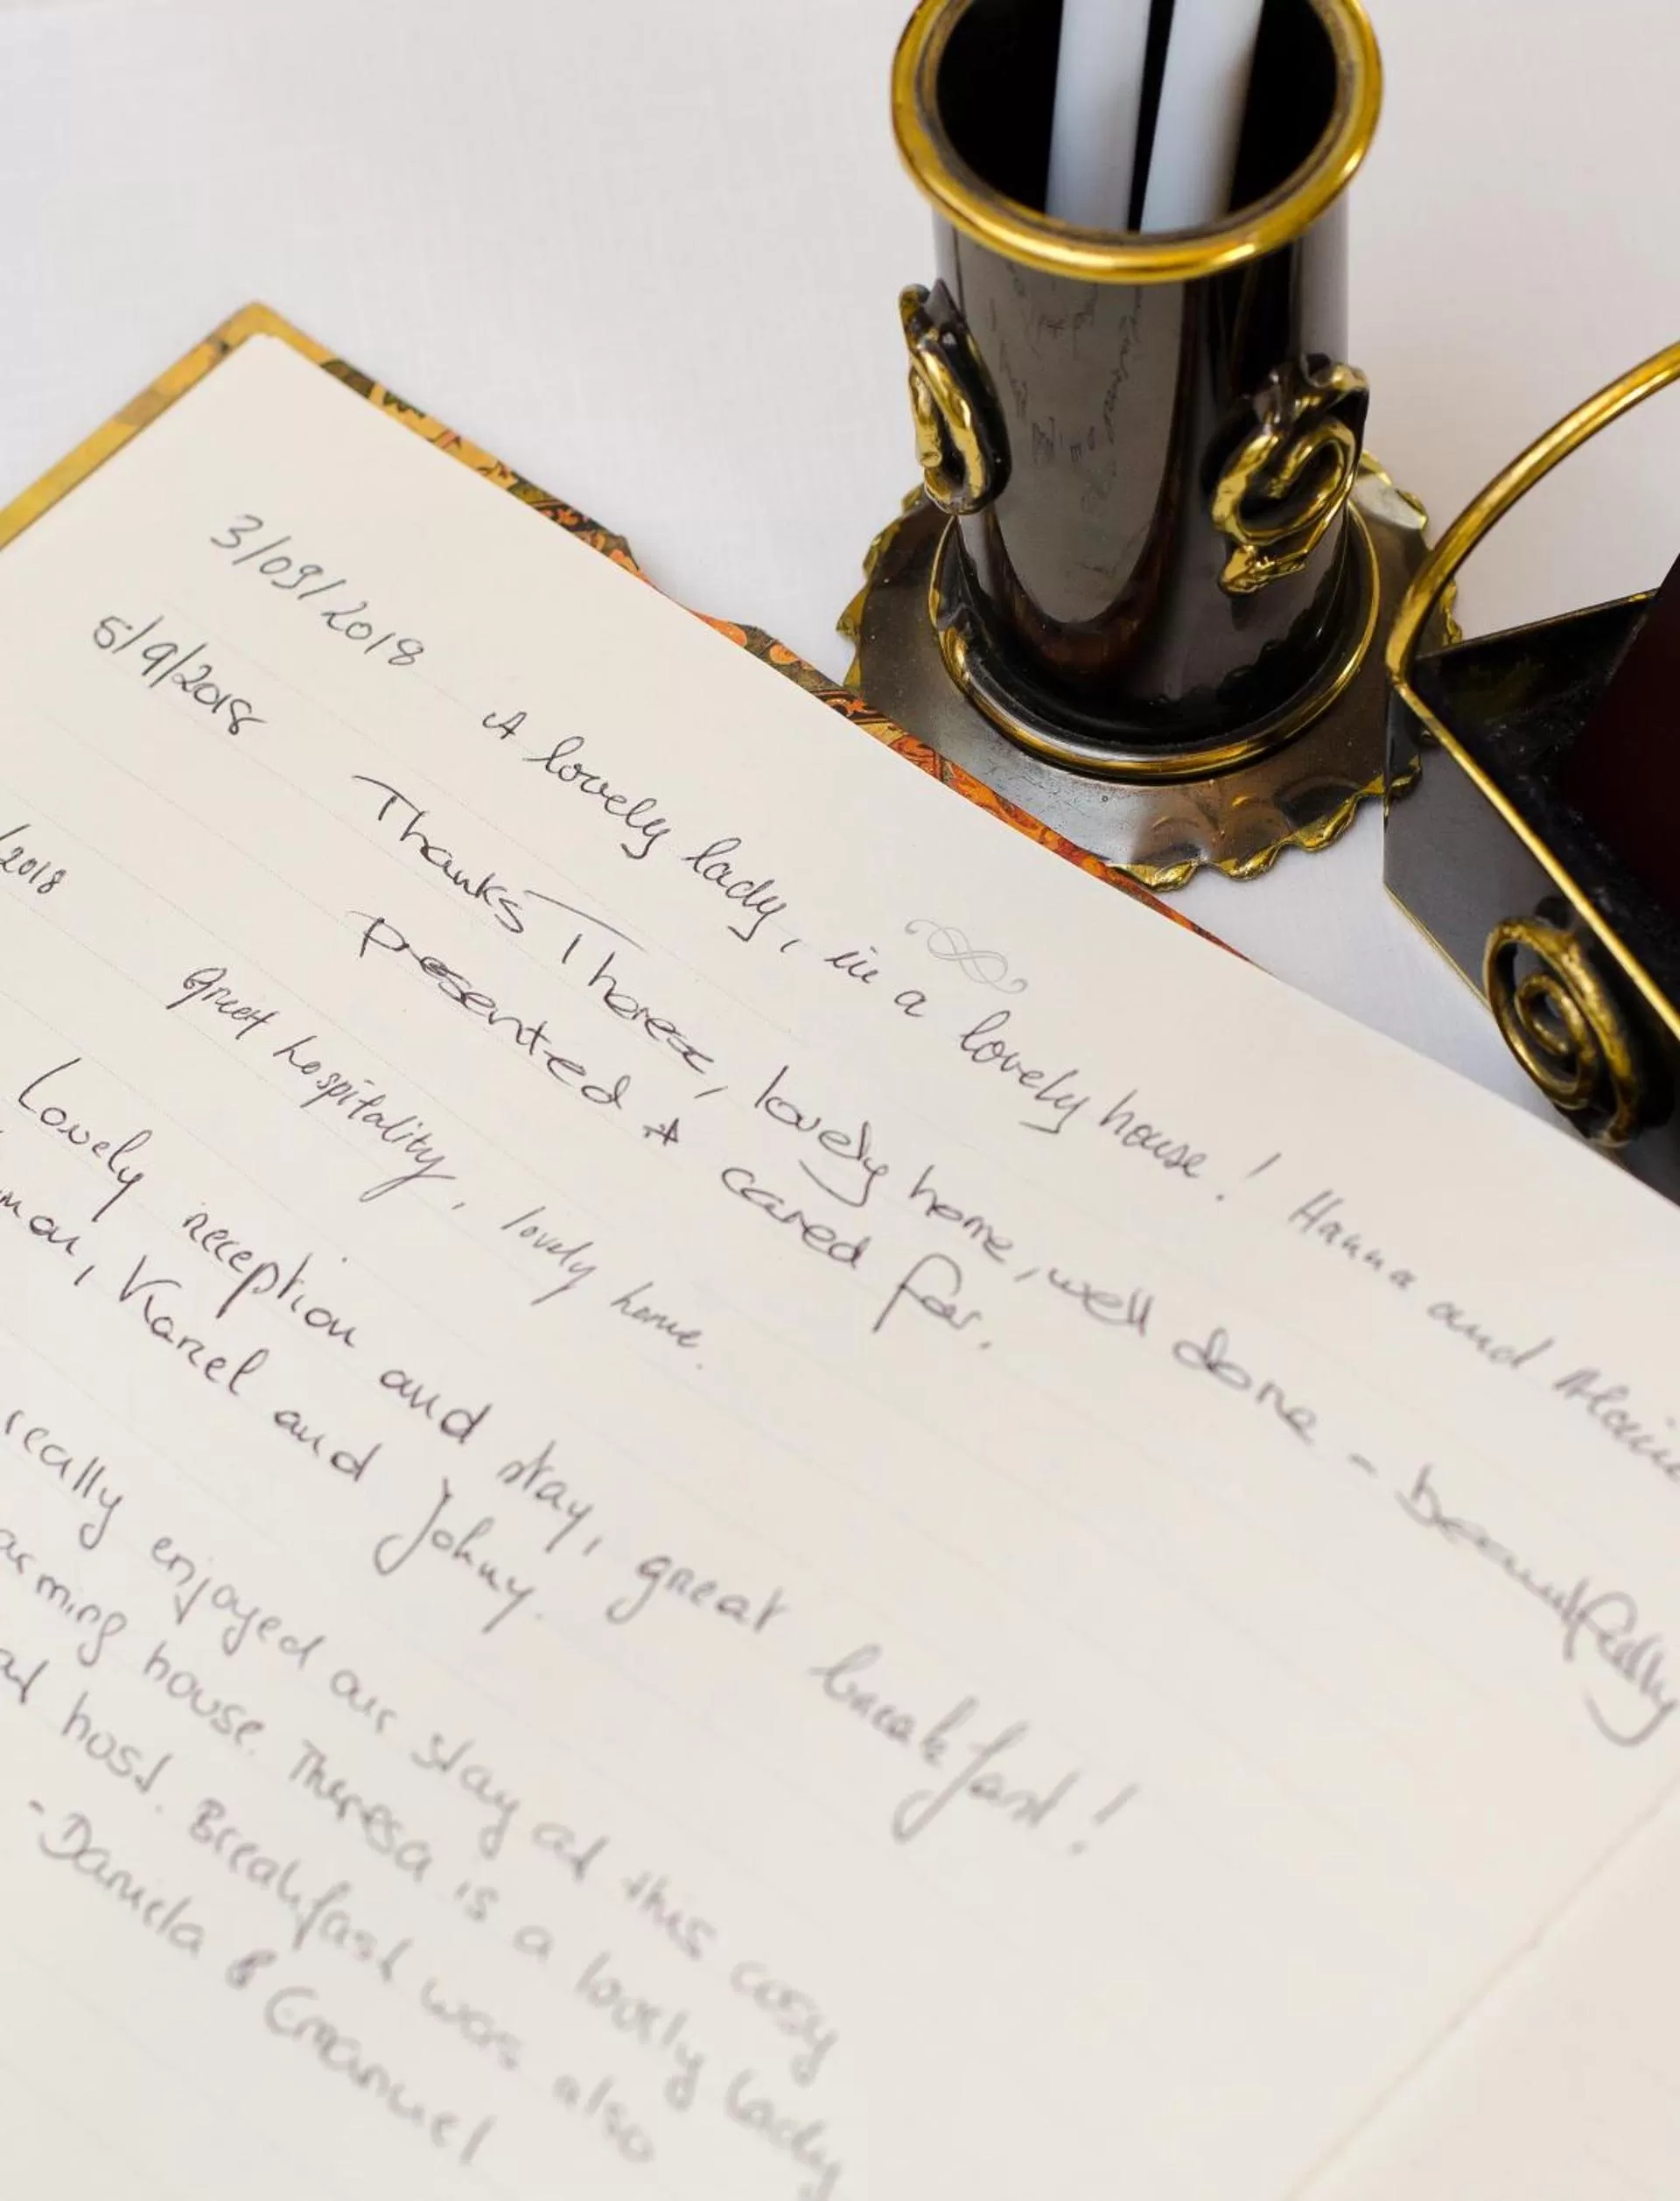 3/09/2018 A lovely lady, in a lovely house! Hanna and Alain
5/9/2018 Thanks Therese, lovely home, well done - beautifully
presented & cared for.
/2018 Great hospitality, lovely home.
Lovely reception and stay, great breakfast!
Karel and Johny.
really enjoyed our stay at this cosy
house. Theresa is a lovely lady
host. Breakfast was also
- Daniela & Emanuel